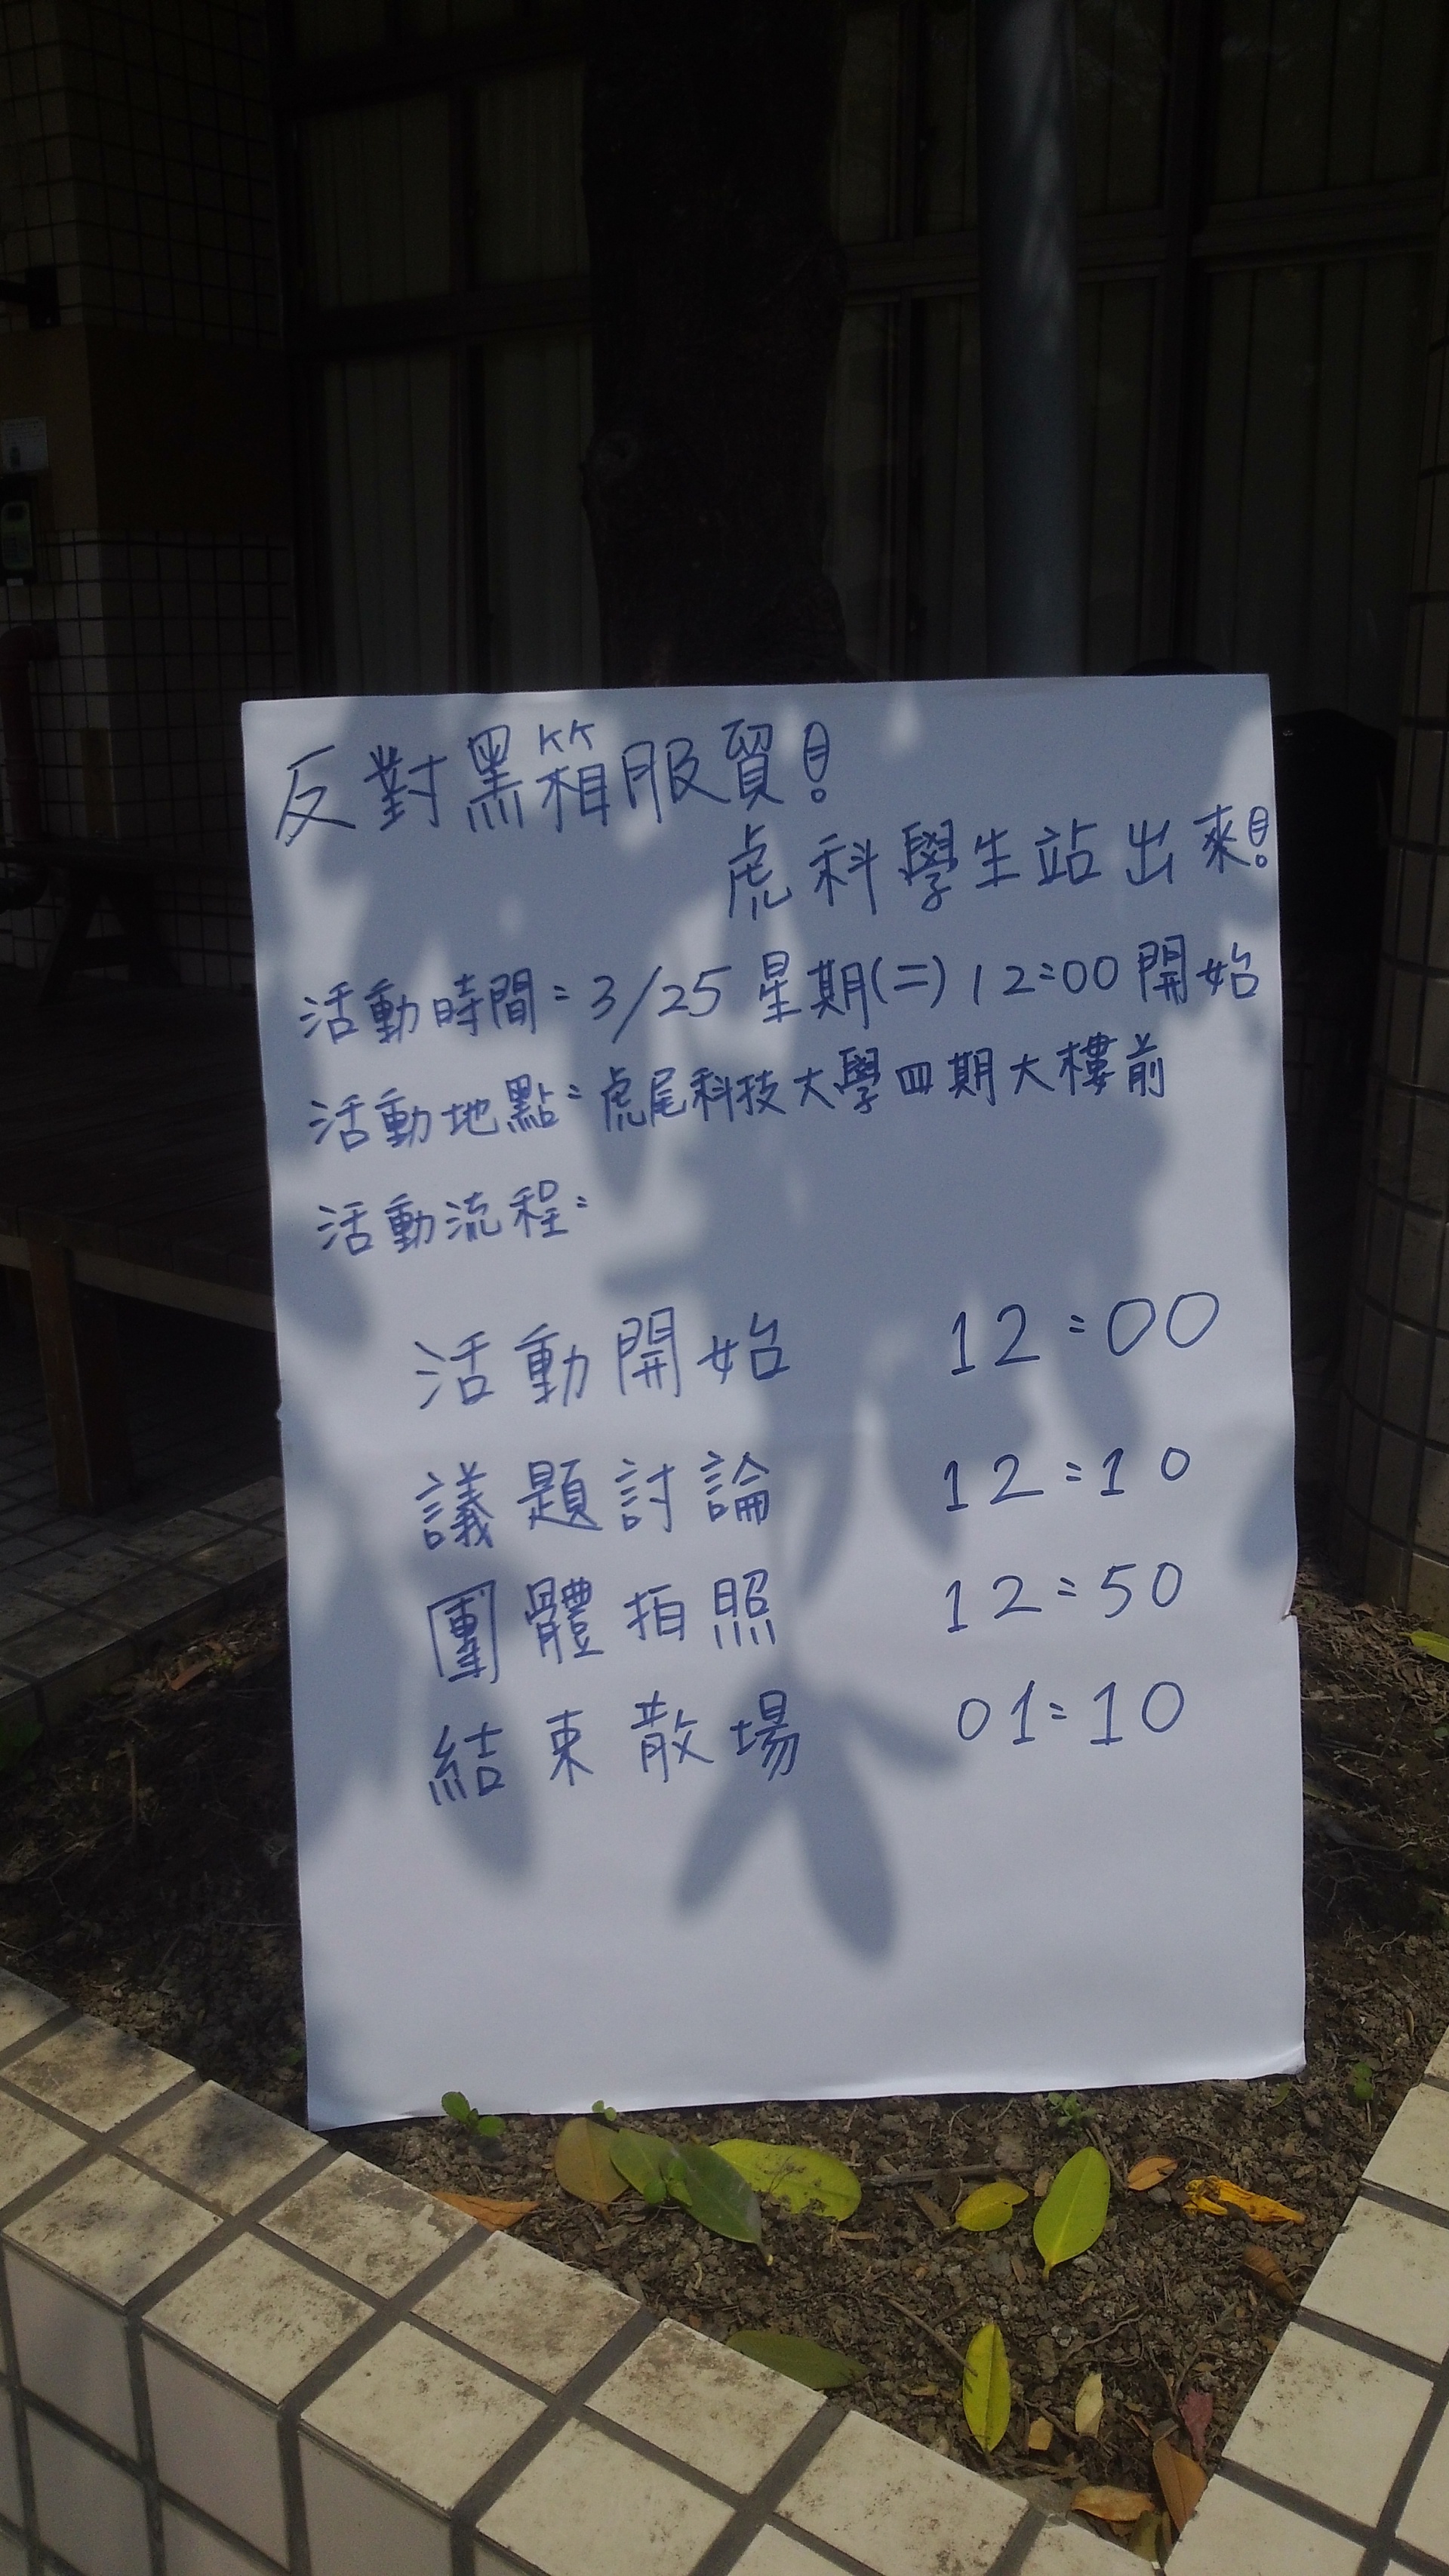 反對黑箱服貿!
虎科學生站出來!
活動時間:3/25 星期(二)12:00開始
活動地點:虎尾科技大學四期大樓前
活動流程:
活動開始 12:00
議題討論 12:10
團體拍照 12:50
結束散場 01:10